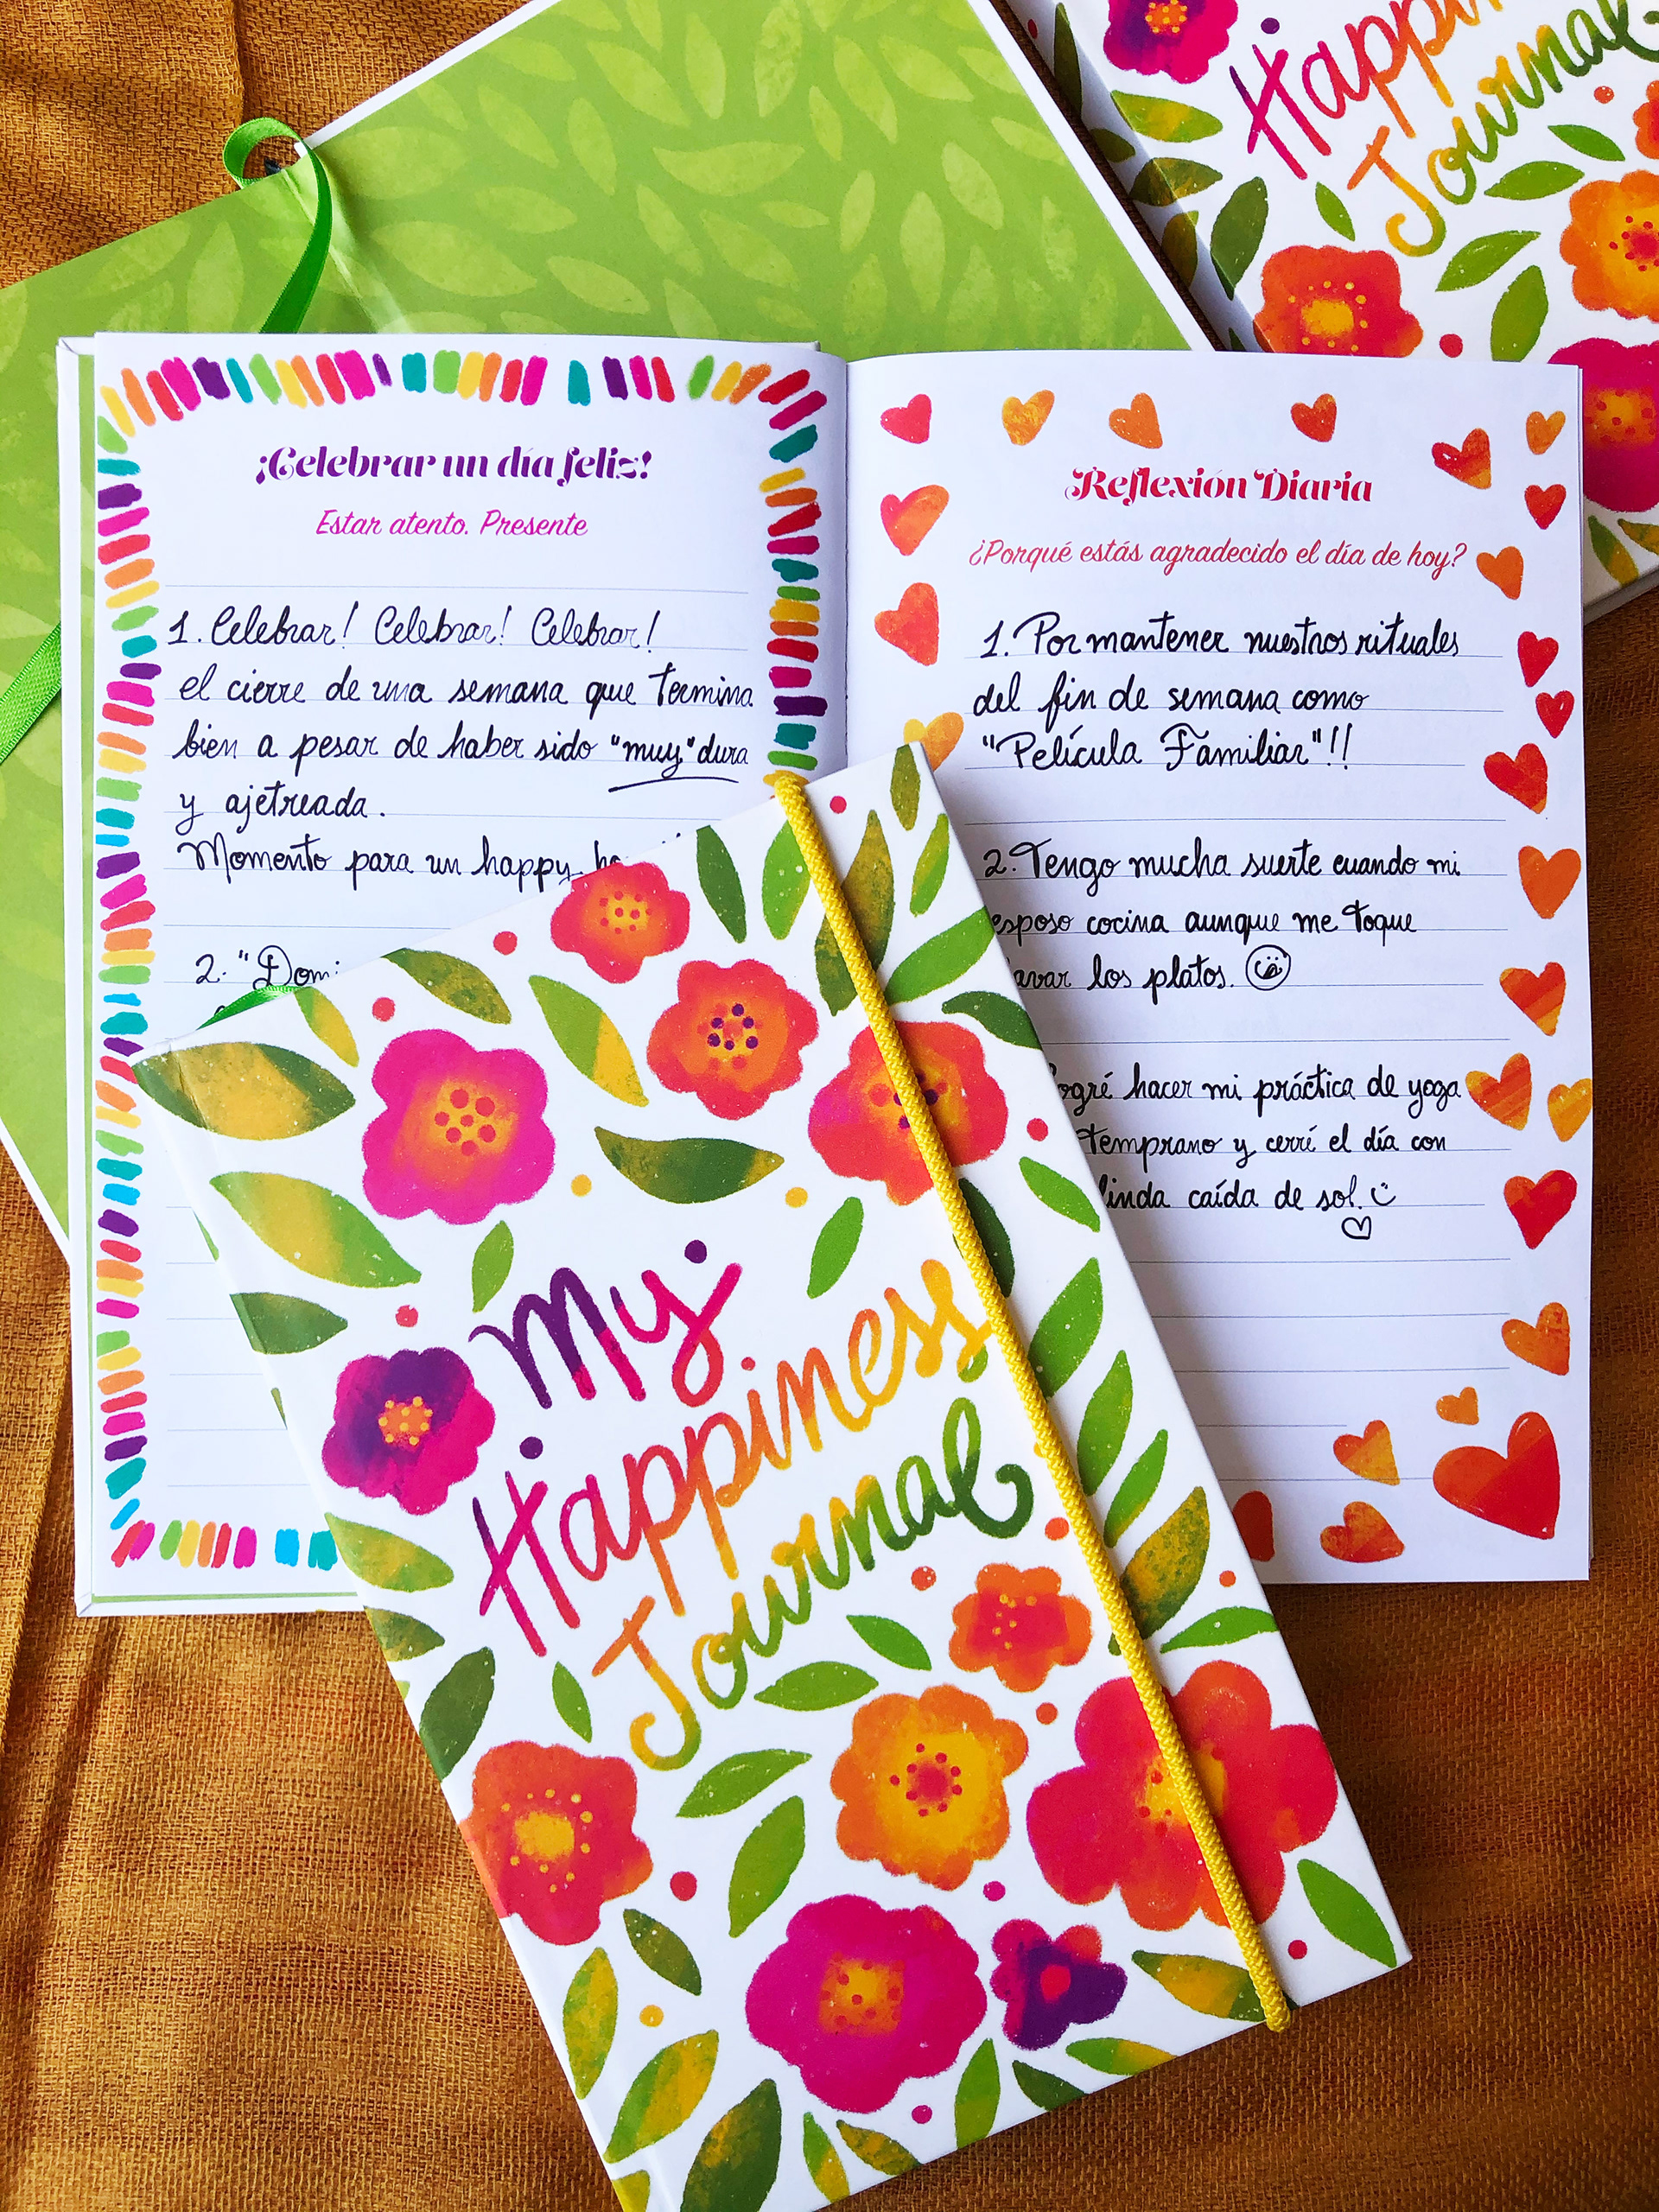 Happin
Journal
¡Celebrar un día feliz!
Estar atento. Presente
1. Celebrar! Celebrar! Celebrar!
el cierre de una semana que termina
bien a pesar de haber sido "muy" dura
y ajetreada.
Momento para un happy
2. "Domi
Reflexión Diaria
¿Porqué estás agradecido el día de hoy?
1. Por mantener nuestros rituales
del fin de semana como
"Película Familiar"!!
2. Tengo mucha suerte cuando mi
esposo cocina aunque me toque
avar los platos.
ogré hacer mi práctica de yoga
temprano y cerré el día con
linda caída de sol.
My
Happiness
Journal